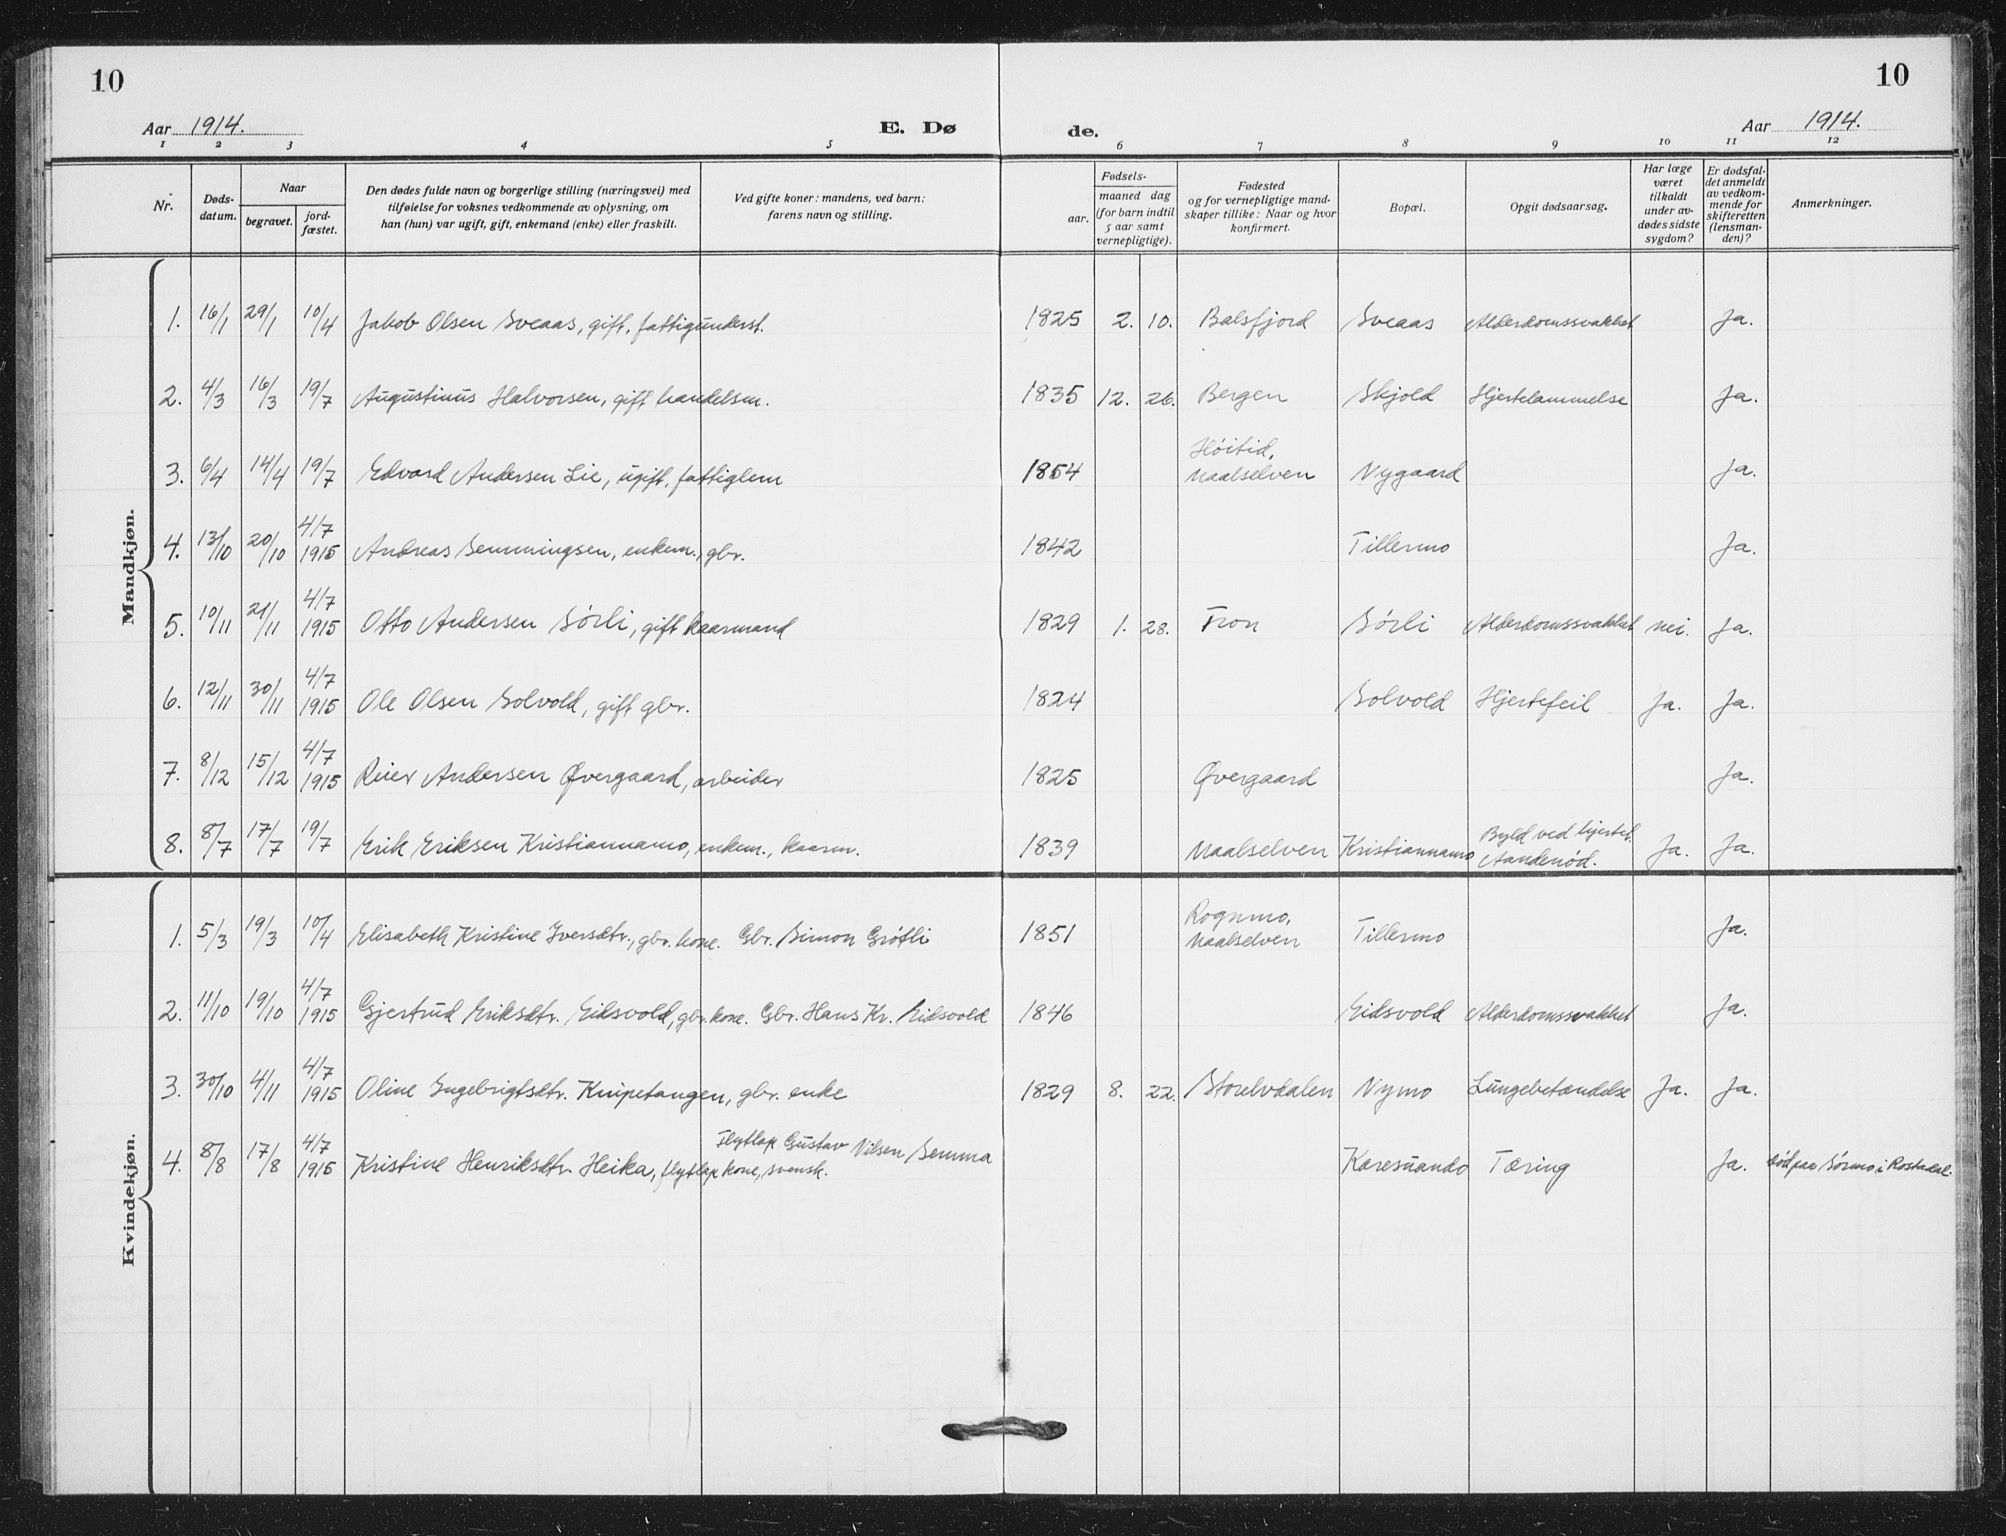 10 10
Aar 1914. E. Døde. Aar 1914.
1 2 3 4 5 6 7 8 9 10 11 12
Nr. | Dødsdatum. | Naar begravet. | jordfæstet. | Den dødes fulde navn og borgerlige stilling (næringsvei) med tilføielse for voksnes vedkommende av oplysning, om han (hun) var ugift, gift, enkemand (enke) eller fraskilt. | Ved gifte koner: mandens, ved barn: farens navn og stilling. | Fødsels- aar. | maaned dag (for barn indtil 5 aar samt vernepligtige). | Fødested og for vernepligtige mandskaper tillike: Naar og hvor konfirmert. | Bopæl. | Opgit dødsaarsag. | Har læge været tilkaldt under avdødes sidste sygdom? | Er dødsfaldet anmeldt av vedkommende for skifteretten (lensmanden)? | Anmerkninger.
Mandkjøn.
1. 16/1 29/1 10/4 Jakob Olsen Sveaas, gift, fattigunderst. 1825 2. 10. Balsfjord Sveaas Alderdomssvakhet Ja.
2. 4/3 16/3 19/7 Augustinus Halvorsen, gift handelsm. 1835 12. 26. Bergen Skjold Hjertelammelse Ja.
3. 6/4 14/4 19/7 Edvard Andersen Lie, ugift, fattiglem 1854 Höitid, Maalselven Nygaard Ja.
4. 13/10 20/10 4/7 1915 Andreas Semmingsen, enkem., gbr. 1842 Tillermo Ja.
5. 10/11 21/11 4/7 1915 Otto Andersen Sörli, gift kaarmand 1829 1. 28. Fron Sörli Alderdomssvakhet nei. Ja.
6. 12/11 30/11 4/7 1915 Ole Olsen Solvold, gift gbr. 1824 Solvold Hjertefeil Ja. Ja.
7. 8/12 15/12 4/7 1915 Reier Andersen Øvergaard, arbeider 1825 Øvergaard Ja.
8. 8/7 17/7 19/7 Erik Eriksen Kristiannamo, enkem., kaarm. 1839 Maalselven Kristiannamo Byld ved hjertet. Aandenöd. Ja. Ja.
Kvindekjøn.
1. 5/3 19/3 10/4 Elisabeth Kristine Iversdtr., gbr. kone. Gbr. Simon Grötli 1851 Rognmo, Maalselven Tillermo Ja.
2. 11/10 19/10 4/7 1915 Gjertrud Eriksdtr. Eidsvold, gbr. kone. Gbr. Hans Kr. Eidsvold 1846 Eidsvold Alderdomssvakhet Ja.
3. 30/10 4/11 4/7 1915 Oline Engebrigtsdtr. Knipetangen, gbr. enke 1829 8. 22. Storelvdalen Nymo Lungebetændelse Ja. Ja.
4. 8/8 17/8 4/7 1915 Kristine Henriksdtr. Heika, flytlap kone, svensk. Flytlap Gustav Nilsen Semma Karesuando Tæring Ja. död paa Sörmo i Rostadal.